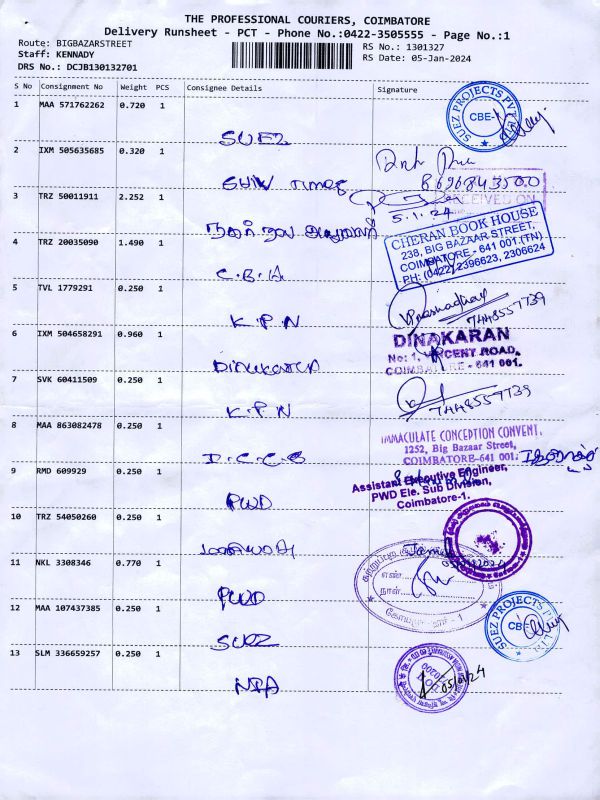 THE PROFESSIONAL COURIERS, COIMBATORE
Delivery Runsheet - PCT - Phone No.:0422-3505555 - Page No.:1
Route: BIGBAZARSTREET
RS No.: 1301327
Staff: KENNADY
RS Date: 05-Jan-2024
DRS No.: DCJB130132701
S No Consignment No Weight PCS Consignee Details Signature
1 MAA 571762262 0.720 1
SUEZ PROJECTS PVT
CBE-1
SUEZ
2 IXM 505635685 0.320 1
8696843500
3 TRZ 50011911 2.252 1
RECEIVED ON
5.1.24
4 TRZ 20035090 1.490 1
CHERAN BOOK HOUSE
238, BIG BAZAAR STREET,
COIMBATORE - 641 001.(TN)
PH: (0422) 2396623, 2306624
C.B.H
5 TVL 1779291 0.250 1
7448557739
K.P.N
6 IXM 504658291 0.960 1
DINAKARAN
No: 1, CENT ROAD,
COIMBATORE - 641 001.
Dinakaran
7 SVK 60411509 0.250 1
7448557739
K.P.N
8 MAA 863082478 0.250 1
IMMACULATE CONCEPTION CONVENT,
1252, Big Bazaar Street,
COIMBATORE-641 001.
9 RMD 609929 0.250 1
Assistant Executive Engineer,
PWD Ele. Sub Division,
Coimbatore-1.
PWD
10 TRZ 54050260 0.250 1
11 NKL 3308346 0.770 1
எண்
நாள்
PWD
12 MAA 107437385 0.250 1
SUEZ PROJECTS
CBE-1
SUEZ
13 SLM 336659257 0.250 1
05/01/24